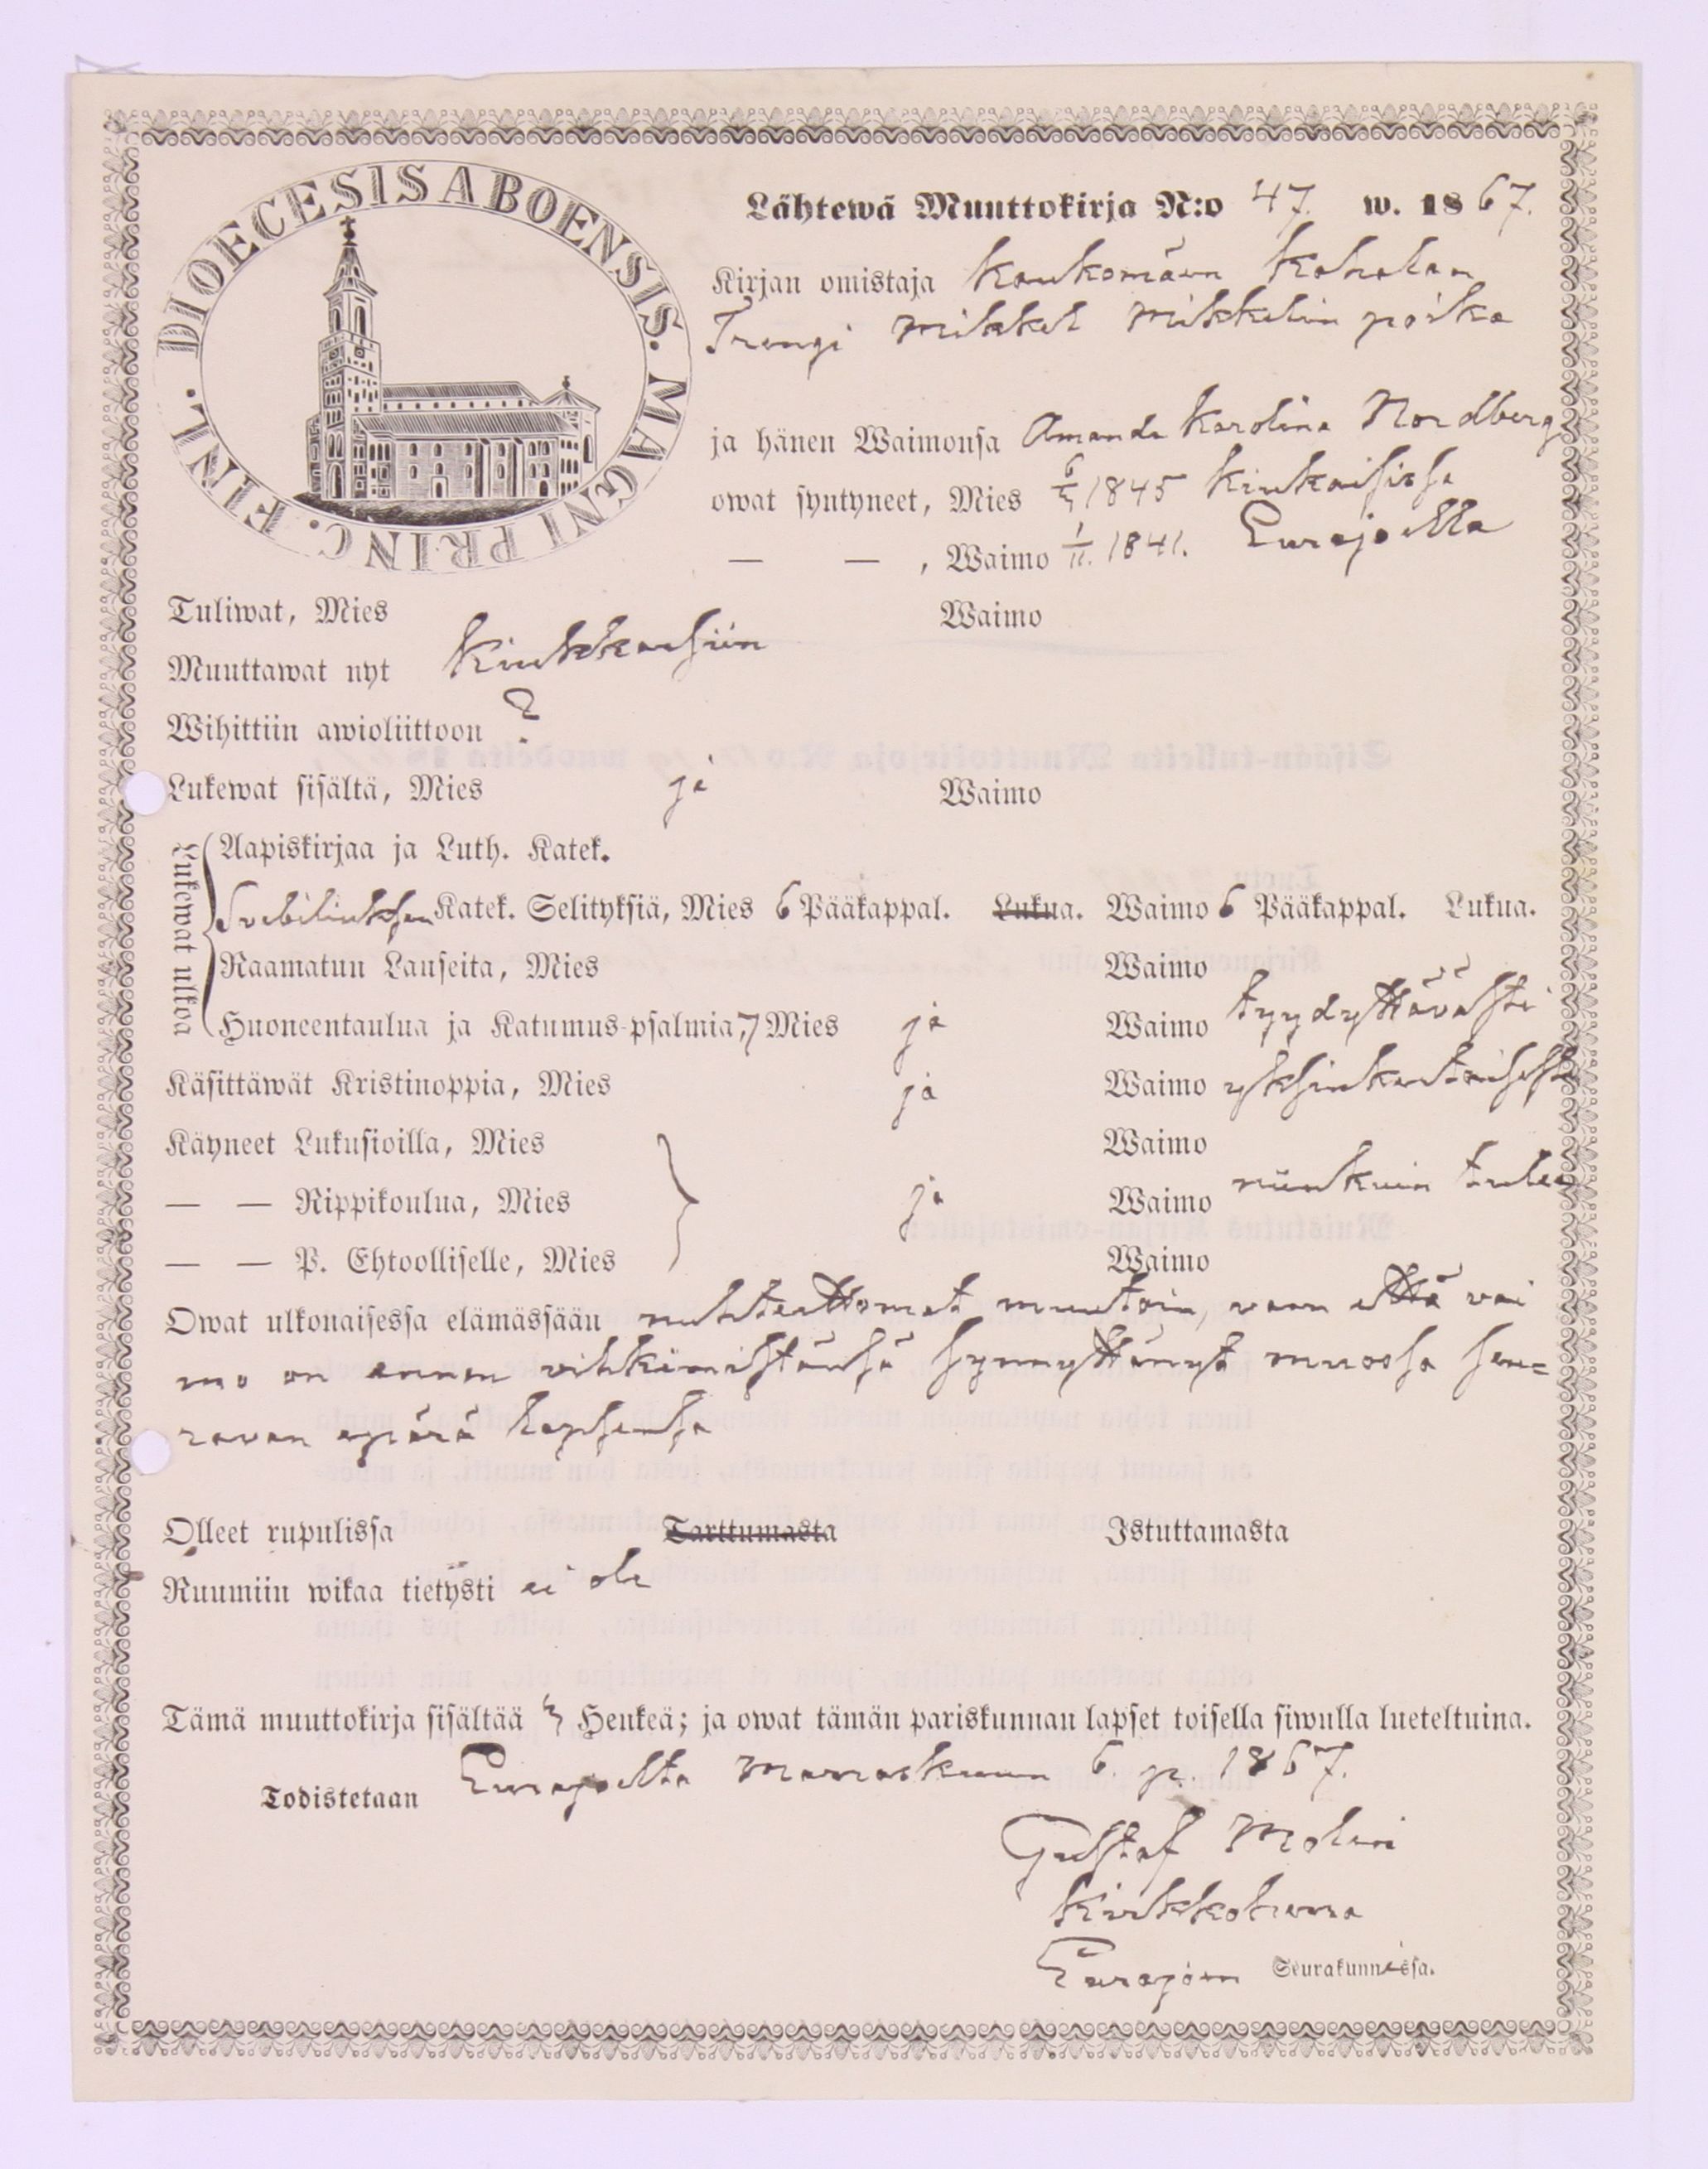 DIOECESIS ABOENSIS. MAGNI PRINC. FINL.
Lähtewä Muuttokirja N:o 47. w. 1867.
Kirjan omistaja Kaukomäen Koholan
Trengi Mikkel Mikkelin poika
ja hänen Waimonsa Amanda Karolina Nordberg
owat syntyneet, Mies 1845 Kiukaisissa
— — , Waimo 1/11. 1841. Eurajoella
Tuliwat, Mies Waimo
Muuttawat nyt Kiukkaisiin
Wihittiin awioliittoon ?
Lukewat sisältä, Mies ja Waimo
Lukewat ulkoa
Aapiskirjaa ja Luth. Katek.
Svebiliuksen Katek. Selityksiä, Mies 6 Pääkappal. Lukua. Waimo 6 Pääkappal. Lukua.
Raamatun Lauseita, Mies Waimo
Huoneentaulua ja Katumus-psalmia, 7 Mies ja Waimo tyydyttävästi
Käsittäwät Kristinoppia, Mies ja Waimo yksinkertaisesti
Käyneet Lukusioilla, Mies Waimo
— — Rippikoulua, Mies ja Waimo niinkuin tulee
— — P. Ehtoolliselle, Mies Waimo
Owat ulkonaisessa elämässään nuhteettomat muutoin, vaan että vai
mo on ennen vihkimistänsä synnyttänyt muossa seu=
ravan äpärä lapsensa
Olleet rupulissa Tarttumasta Istuttamasta
Ruumiin wikaa tietysti ei ole
Tämä muuttokirja sisältää 3 Henkeä; ja owat tämän pariskunnan lapset toisella siwulla lueteltuina.
Todistetaan Eurajoelta Marraskuun 6. p. 1867.
Gustaf Molin
Kirkkoherra
Eurajoen Seurakunnassa.